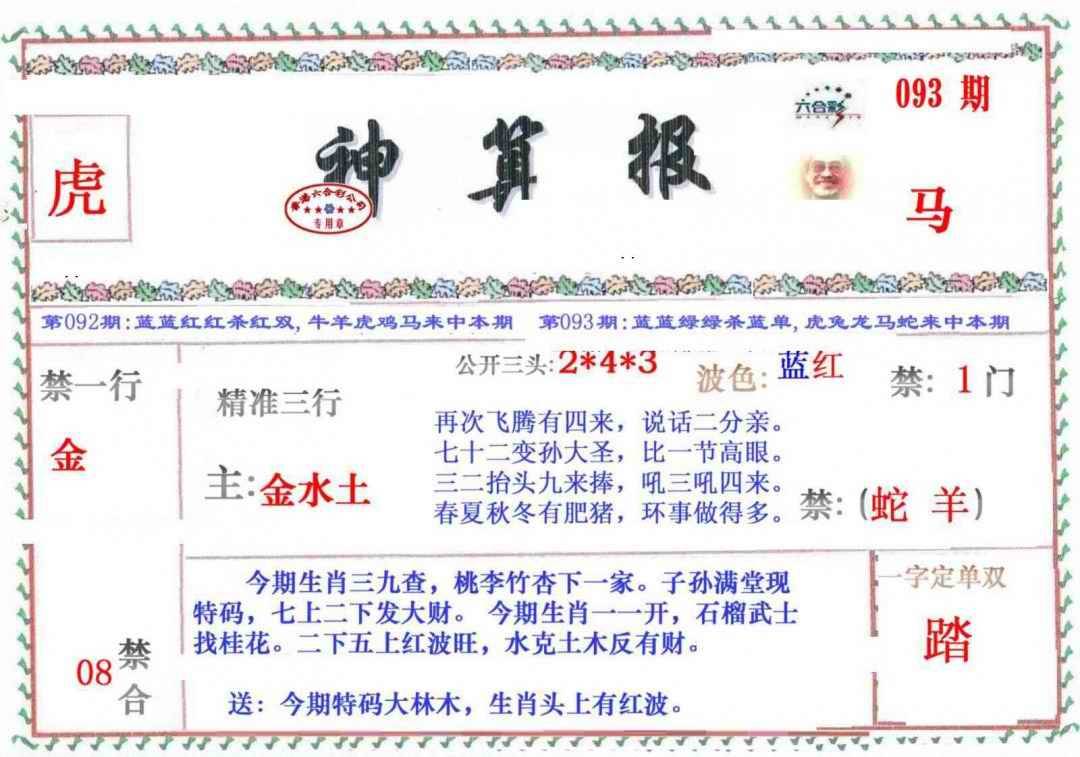 093 期
六合彩
虎
神算报
香港六合彩公司
专用章
马
第092期:蓝蓝红红杀红双,牛羊虎鸡马来中本期
第093期:蓝蓝绿绿杀蓝单,虎兔龙马蛇来中本期
禁一行
金
精准三行
主:金水土
公开三头:2*4*3
波色:蓝红
禁:1门
再次飞腾有四来，说话二分亲。
七十二变孙大圣，比一节高眼。
三二抬头九来捧，吼三吼四来。
春夏秋冬有肥猪，环事做得多。
禁:(蛇 羊)
08禁合
今期生肖三九查，桃李竹杏下一家。子孙满堂现
特码，七上二下发大财。 今期生肖一一开，石榴武士
找桂花。二下五上红波旺，水克土木反有财。
送：今期特码大林木，生肖头上有红波。
一字定单双
踏